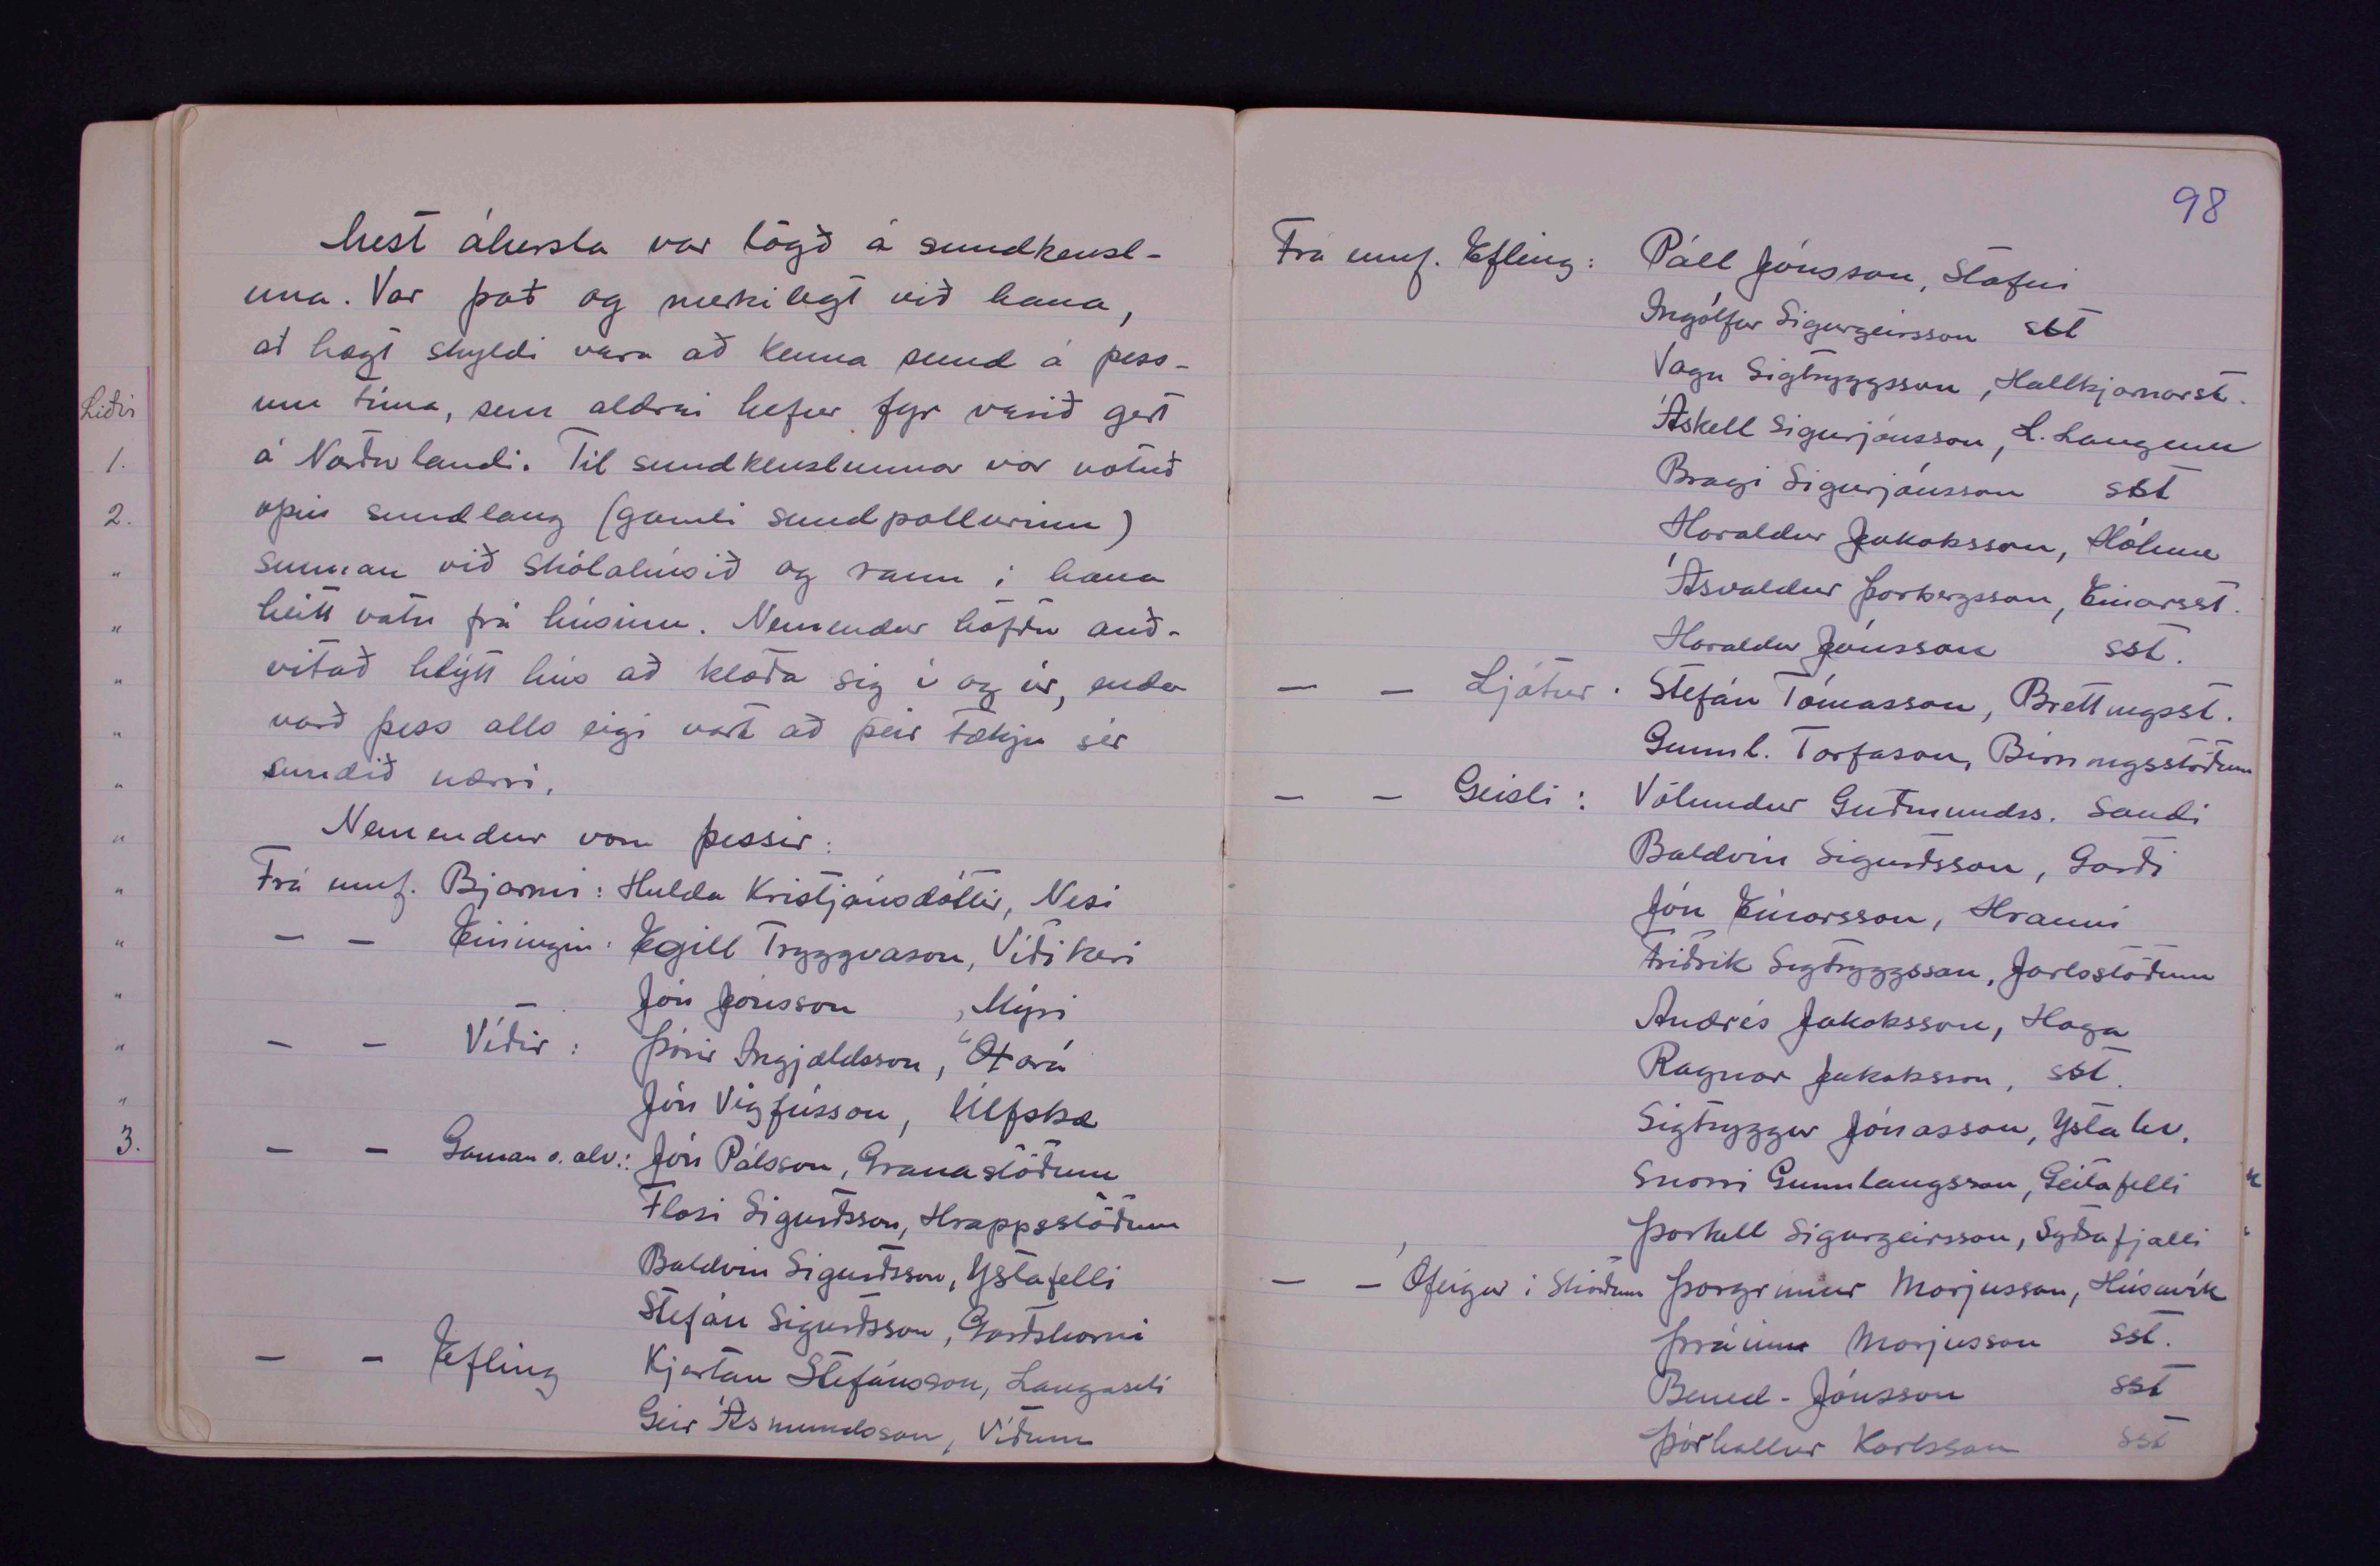 Liðir
1.
2.
"
"
"
"
"
"
"
"
"
"
"
3.
Mest áhersla var lögð á sundkensl-
una. Var það og merkilegt við hana,
að hægt skyldi vera að kenna sund á þess-
um tíma, sem aldrei hefur fyr verið gert
á Norðurlandi. Til sundkenslunnar var notuð
opin sundlaug (gamli sundpollurinn)
sunnan við skólahúsið og rann í hana
heitt vatn frá húsinu. Nemendur höfðu auð-
vitað hlýtt hús að klæða sig í og úr, enda
varð þess alls eigi vart að þeir tækju sér
sundið nærri.
Nemendur voru þessir:
Frá umf. Bjarmi: Hulda Kristjánsdóttir, Nesi
— — Einingin: Egill Tryggvason, Víðikeri
— Jón Jónsson , Mýri
— — Víðir: Þórir Ingjaldsson, Öxará
Jón Vigfússon, Úlfsbæ
— — Gaman o. alv.: Jón Pálsson, Granastöðum
Flosi Sigurðsson, Hrappsstöðum
Baldvin Sigurðsson, Ystafelli
Stefán Sigurðsson, Garðshorni
— — Efling Kjartan Stefánsson, Laugaseli
Geir Ásmundsson, Víðum
98
Frá umf. Efling: Páll Jónsson, Stafni
Ingólfur Sigurgeirsson sst
Vagn Sigtryggsson, Hallbjarnarst.
Áskell Sigurjónsson, L. Laugum
Bragi Sigurjónsson sst
Haraldur Jakobsson, Hólum
Ásvaldur Þorbergsson, Einarsst.
Haraldur Jónsson sst.
— — Ljótur. Stefán Tómasson, Brettingsst.
Gunnl. Torfason, Birningsstöðum
— — Geisli: Völundur Guðmundss. Sandi
Baldvin Sigurðsson, Garði
Jón Einarsson, Hrauni
Friðrik Sigtryggsson, Jarlsstöðum
Andrés Jakobsson, Haga
Ragnar Jakobsson, sst.
Sigtryggur Jónasson, Ystahv.
Snorri Gunnlaugsson, Geitafelli
Þorkell Sigurgeirsson, Syðrafjalli
— — Ófeigur í Skörðum Þorgrímur Marjusson, Húsavík
Þráinn Marjusson sst.
Bened. Jónsson sst
Þórhallur Karlsson sst